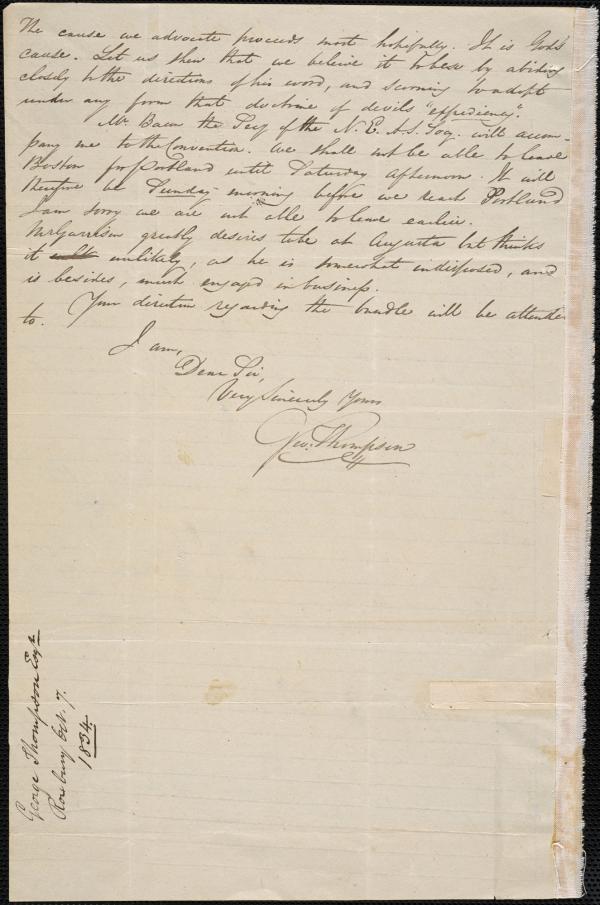 The cause we advocate proceeds most hopefully. It is God's
cause. Let us shew that we believe it to be so by abiding
closely to the directions of his word, and scorning to adopt
under any form that doctrine of devils "expediency".
Mr Bacon the Secy of the N. E. A. S. Socy. will accom-
pany me to the Convention. We shall not be able to leave
Boston for Portland until Saturday afternoon. It will
therefore be Sunday morning before we reach Portland
I am sorry we are not able to leave earlier.
Mr Garrison greatly desires to be at Augusta but thinks
it unlikely, as he is somewhat indisposed, and
is besides, much engaged in business.
Your direction regarding the bundle will be attended
to.
I am,
Dear Sir,
Very Sincerely Yours
Geo. Thompson
George Thompson Esqr.
Roxbury Oct. 7.
1834.